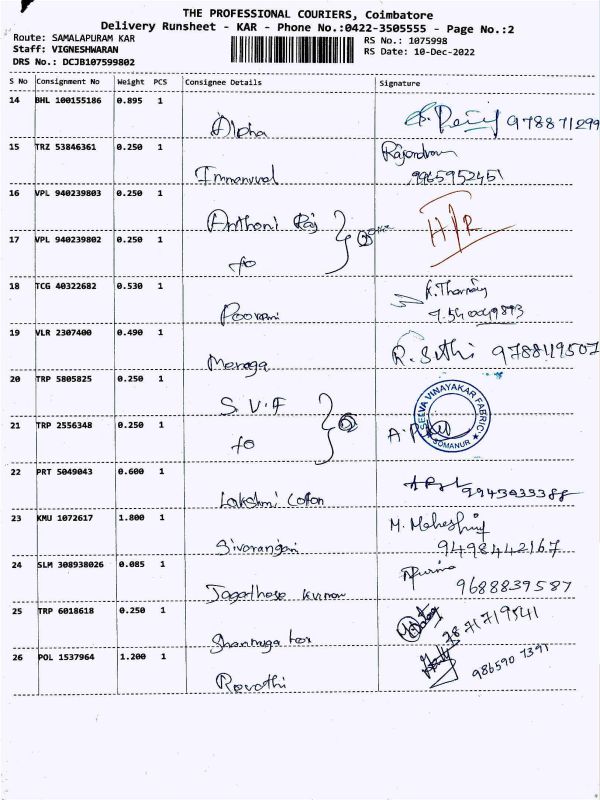 THE PROFESSIONAL COURIERS, Coimbatore
Delivery Runsheet - KAR - Phone No.:0422-3505555 - Page No.:2
Route: SAMALAPURAM KAR
RS No.: 1075998
Staff: VIGNESHWARAN
RS Date: 10-Dec-2022
DRS No.: DCJB107599802
S No Consignment No Weight PCS Consignee Details Signature
14 BHL 100155186 0.895 1
Alpha 978871299
15 TRZ 53846361 0.250 1
Immanuval 9965952451
16 VPL 940239803 0.250 1
Anthoni Raj
H/R
17 VPL 940239802 0.250 1
to
18 TCG 40322682 0.530 1
Poorani
19 VLR 2307400 0.490 1
Menaga R. Sithi 9788119507
20 TRP 5805825 0.250 1
S.V.F
SELVA VINAYAKAR FABRIC
SOMANUR
21 TRP 2556348 0.250 1
to
22 PRT 5049043 0.600 1
Lakshmi Coton 9943933388
23 KMU 1072617 1.800 1
Sivaranjani 9498442167
24 SLM 308938026 0.085 1
Jagathese kumar 9688839587
25 TRP 6018618 0.250 1
Shanmuga tex 7871719541
26 POL 1537964 1.200 1
Revathi 9865901391